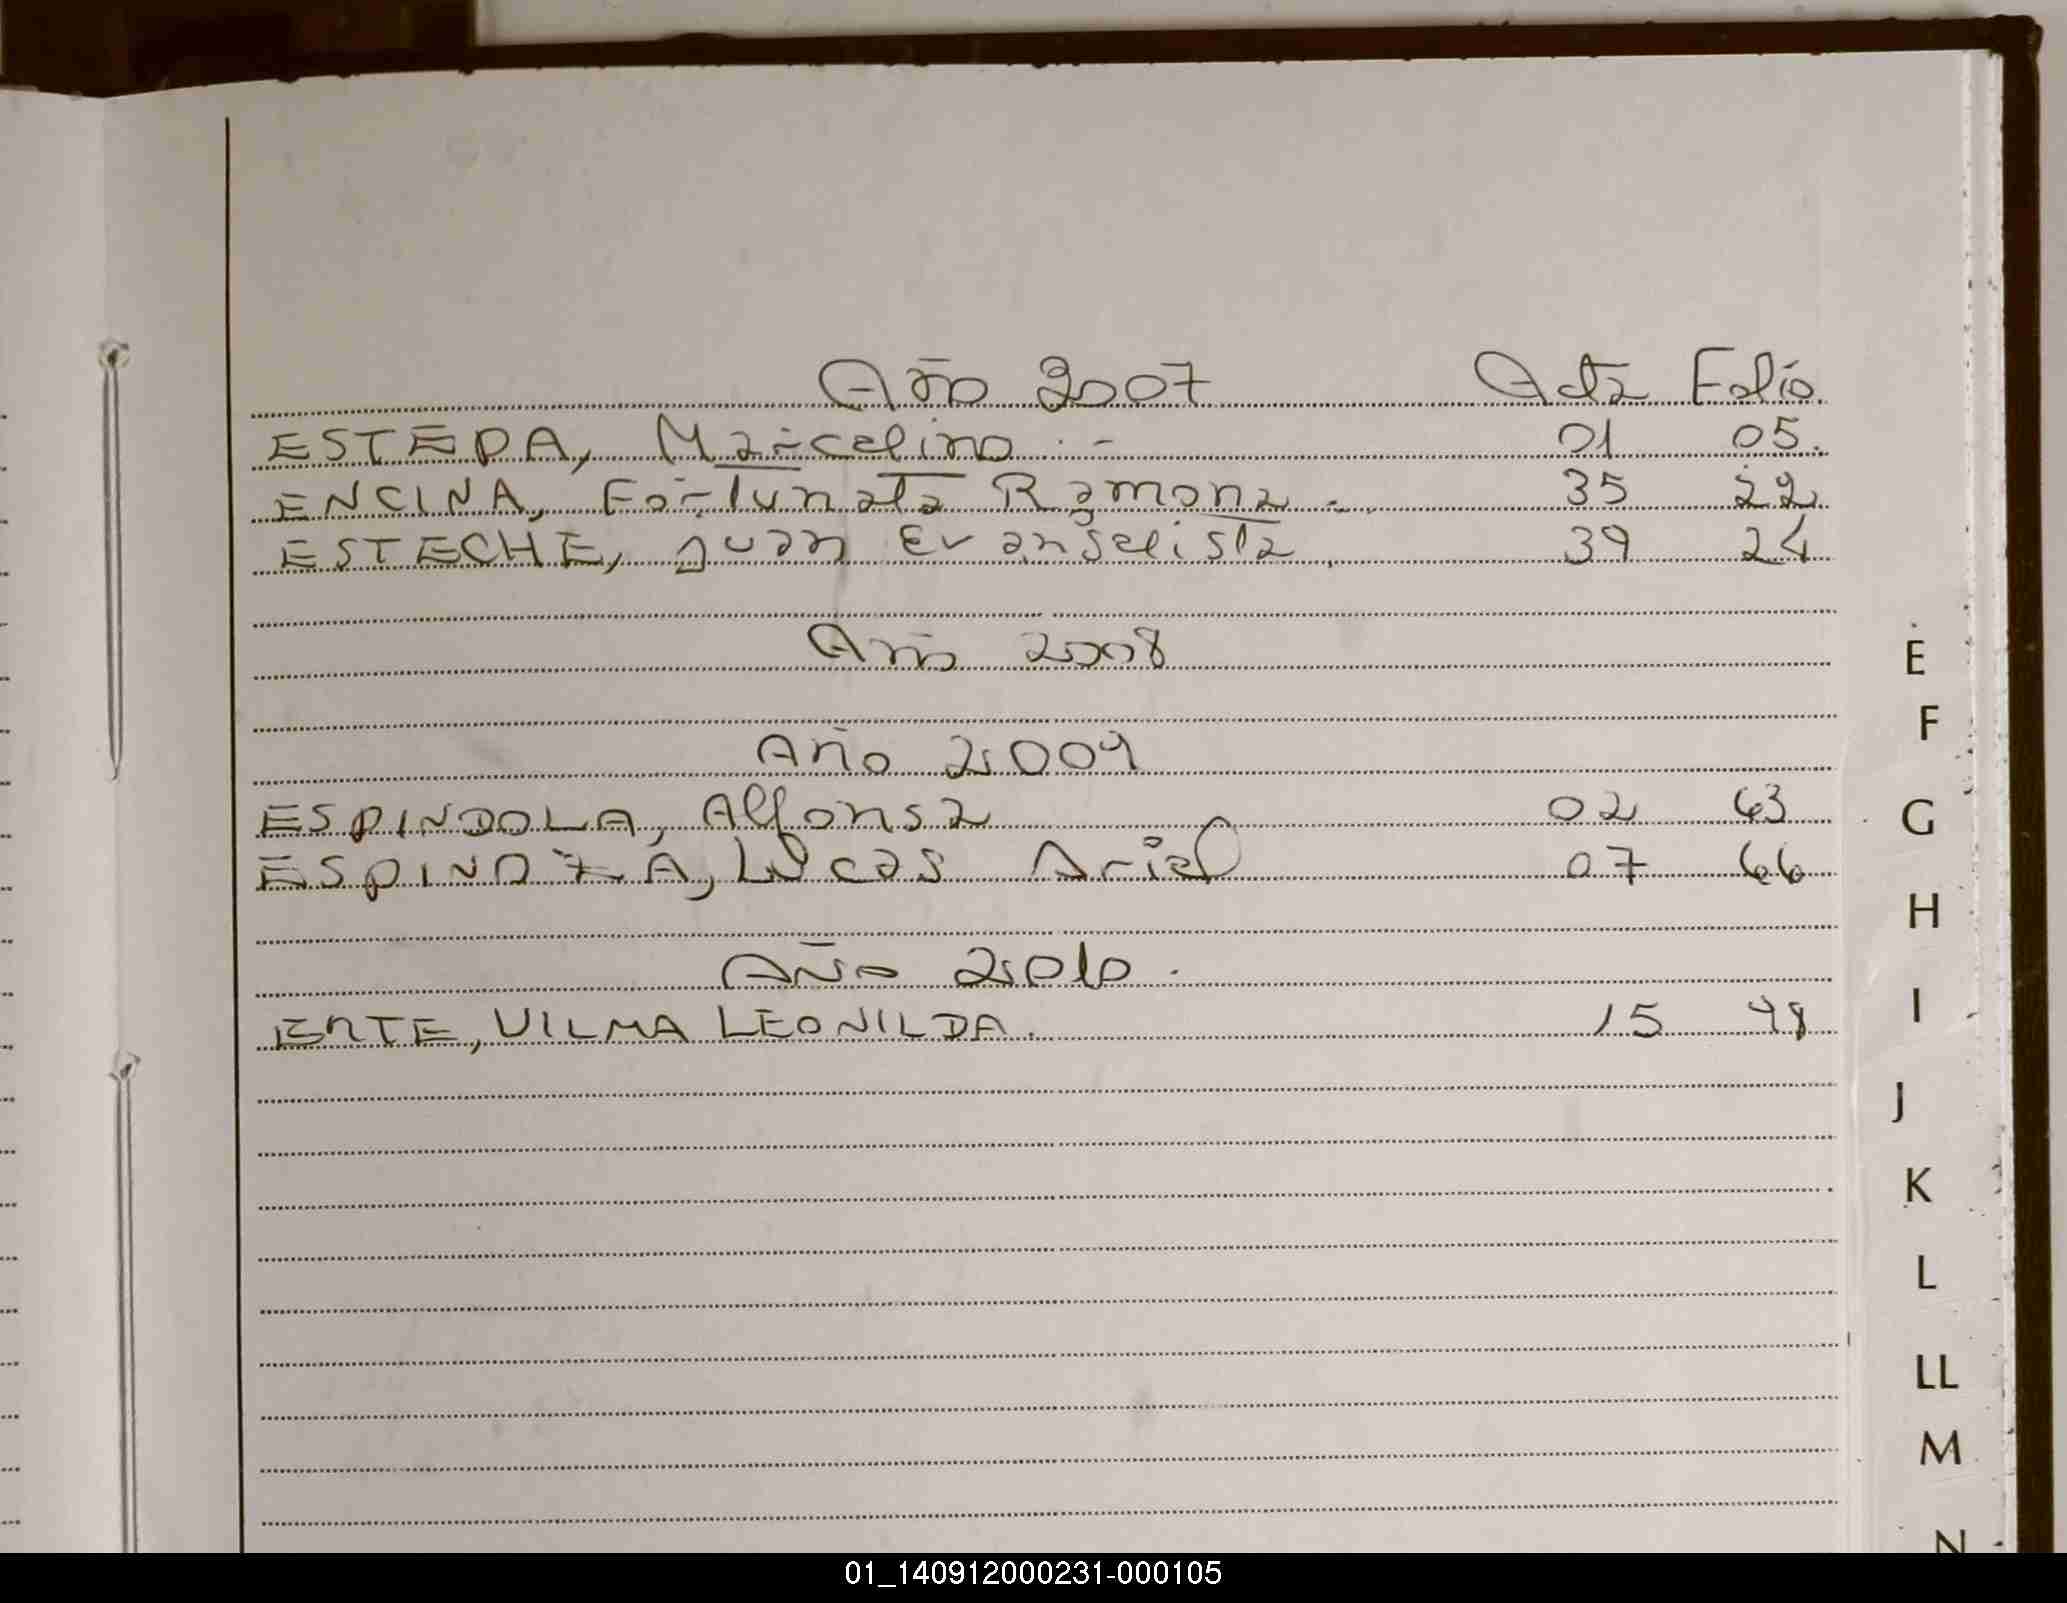 Año 2007 Acta Folio
ESTEPA, Marcelino.- 01 05.
ENCINA, Fortunata Ramona.- 35 22
ESTECHE, Juan Evangelista. 39 24
Año 2008
Año 2009
ESPINDOLA, Alfonsa 02 63
ESPINOZA, Lucas Ariel 07 66
Año 2010.
ERTE, VILMA LEONILDA. 15 98
E
F
G
H
I
J
K
L
LL
M
N
01_140912000231-000105